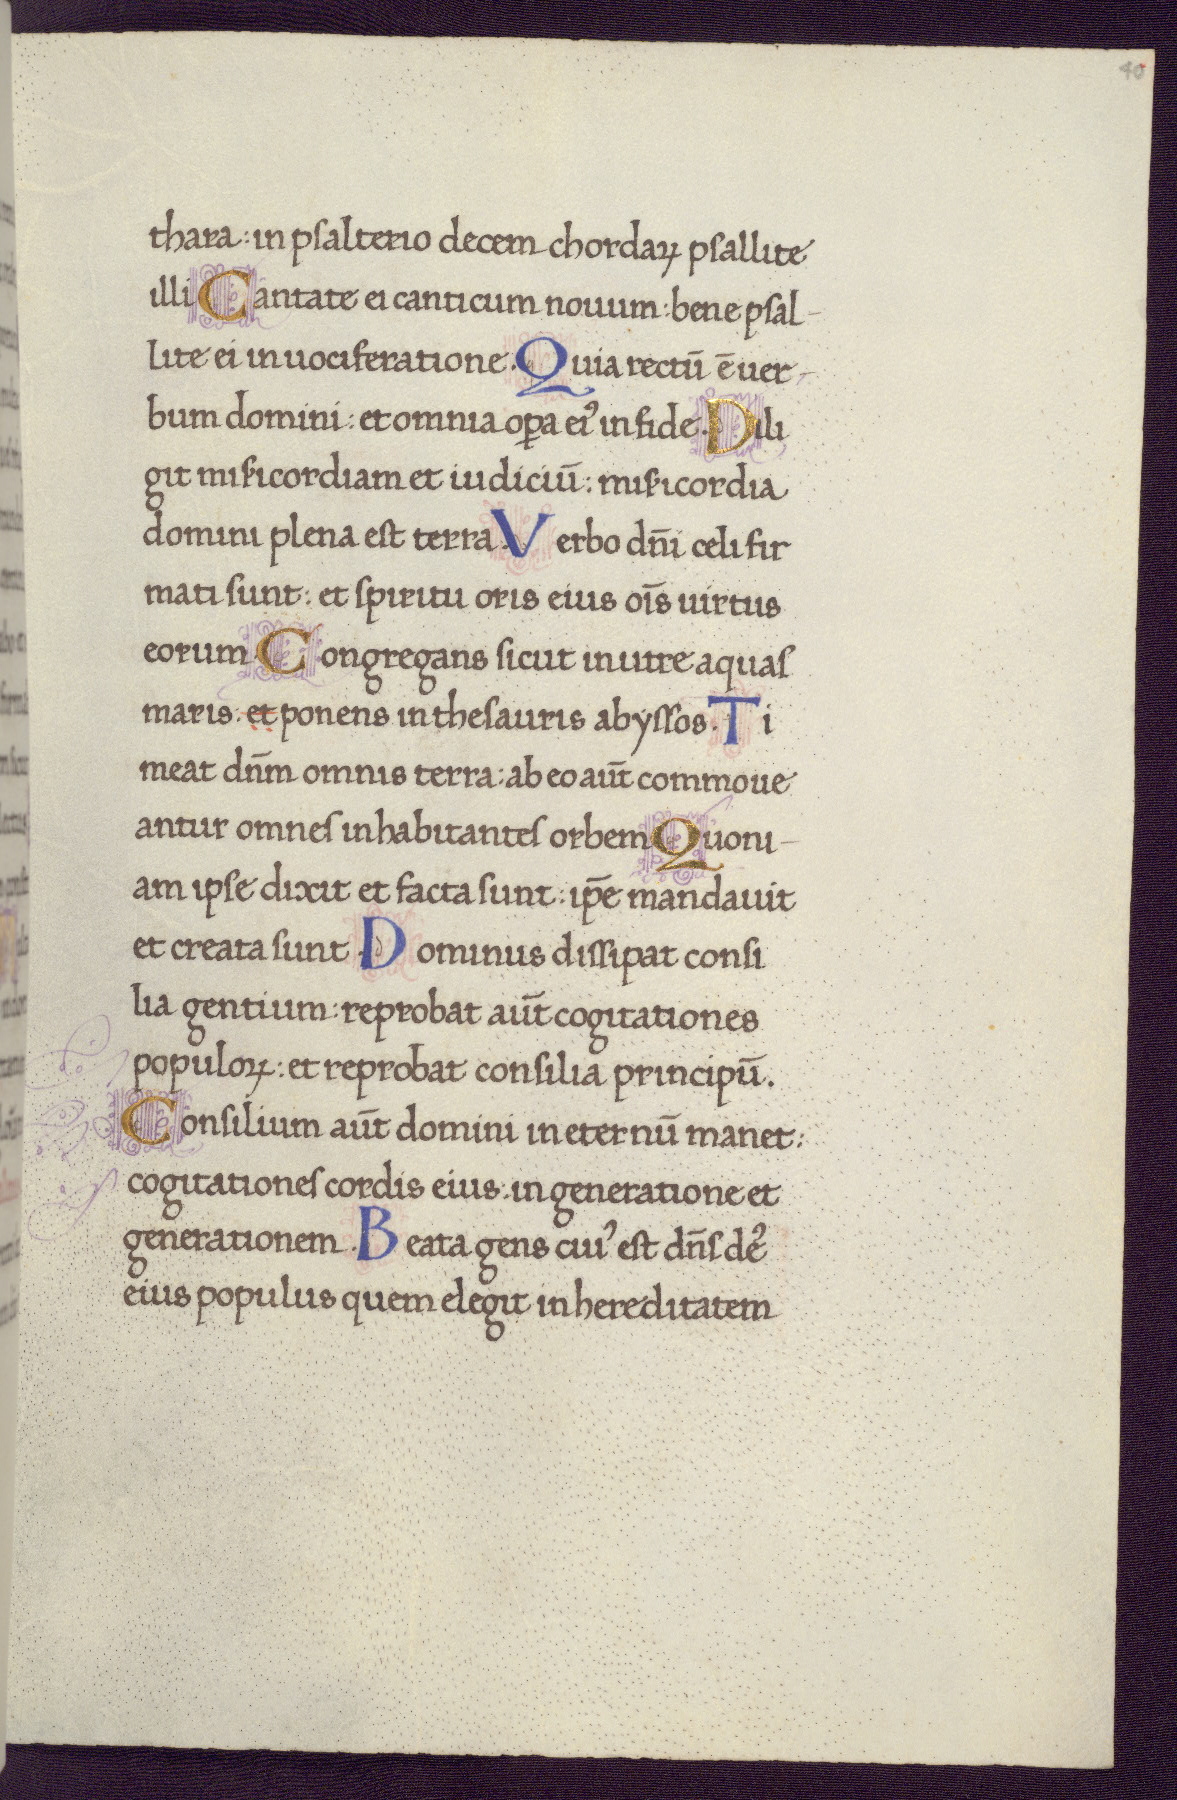 40
thara: in psalterio decem chordaꝝ psallite
illi Cantate ei canticum nouum: bene psal-
lite ei in uociferatione. Quia rectū ē uer-
bum domini: et omnia oꝑa eiꝰ in fide. Dili
git miſicordiam et iudiciū: miſicordia
domini plena est terra. Verbo dn̄i celi fir
mati sunt: et spiritu oris eius oīs uirtus
eorum Congregans sicut in utre aquas
maris. et ponens in thesauris abyssos. Ti
meat dn̄m omnis terra: ab eo aūt commoue
antur omnes inhabitantes orbem Quoni-
am ipse dixit et facta sunt: ip̄e mandauit
et creata sunt. Dominus dissipat consi
lia gentium: reprobat aūt cogitationes
populoꝝ: et reprobat consilia principū.
Consilium aūt domini in eternū manet:
cogitationes cordis eius. in generatione et
generationem. Beata gens cuiꝰ est dn̄s deꝰ
eius populus quem elegit in hereditatem